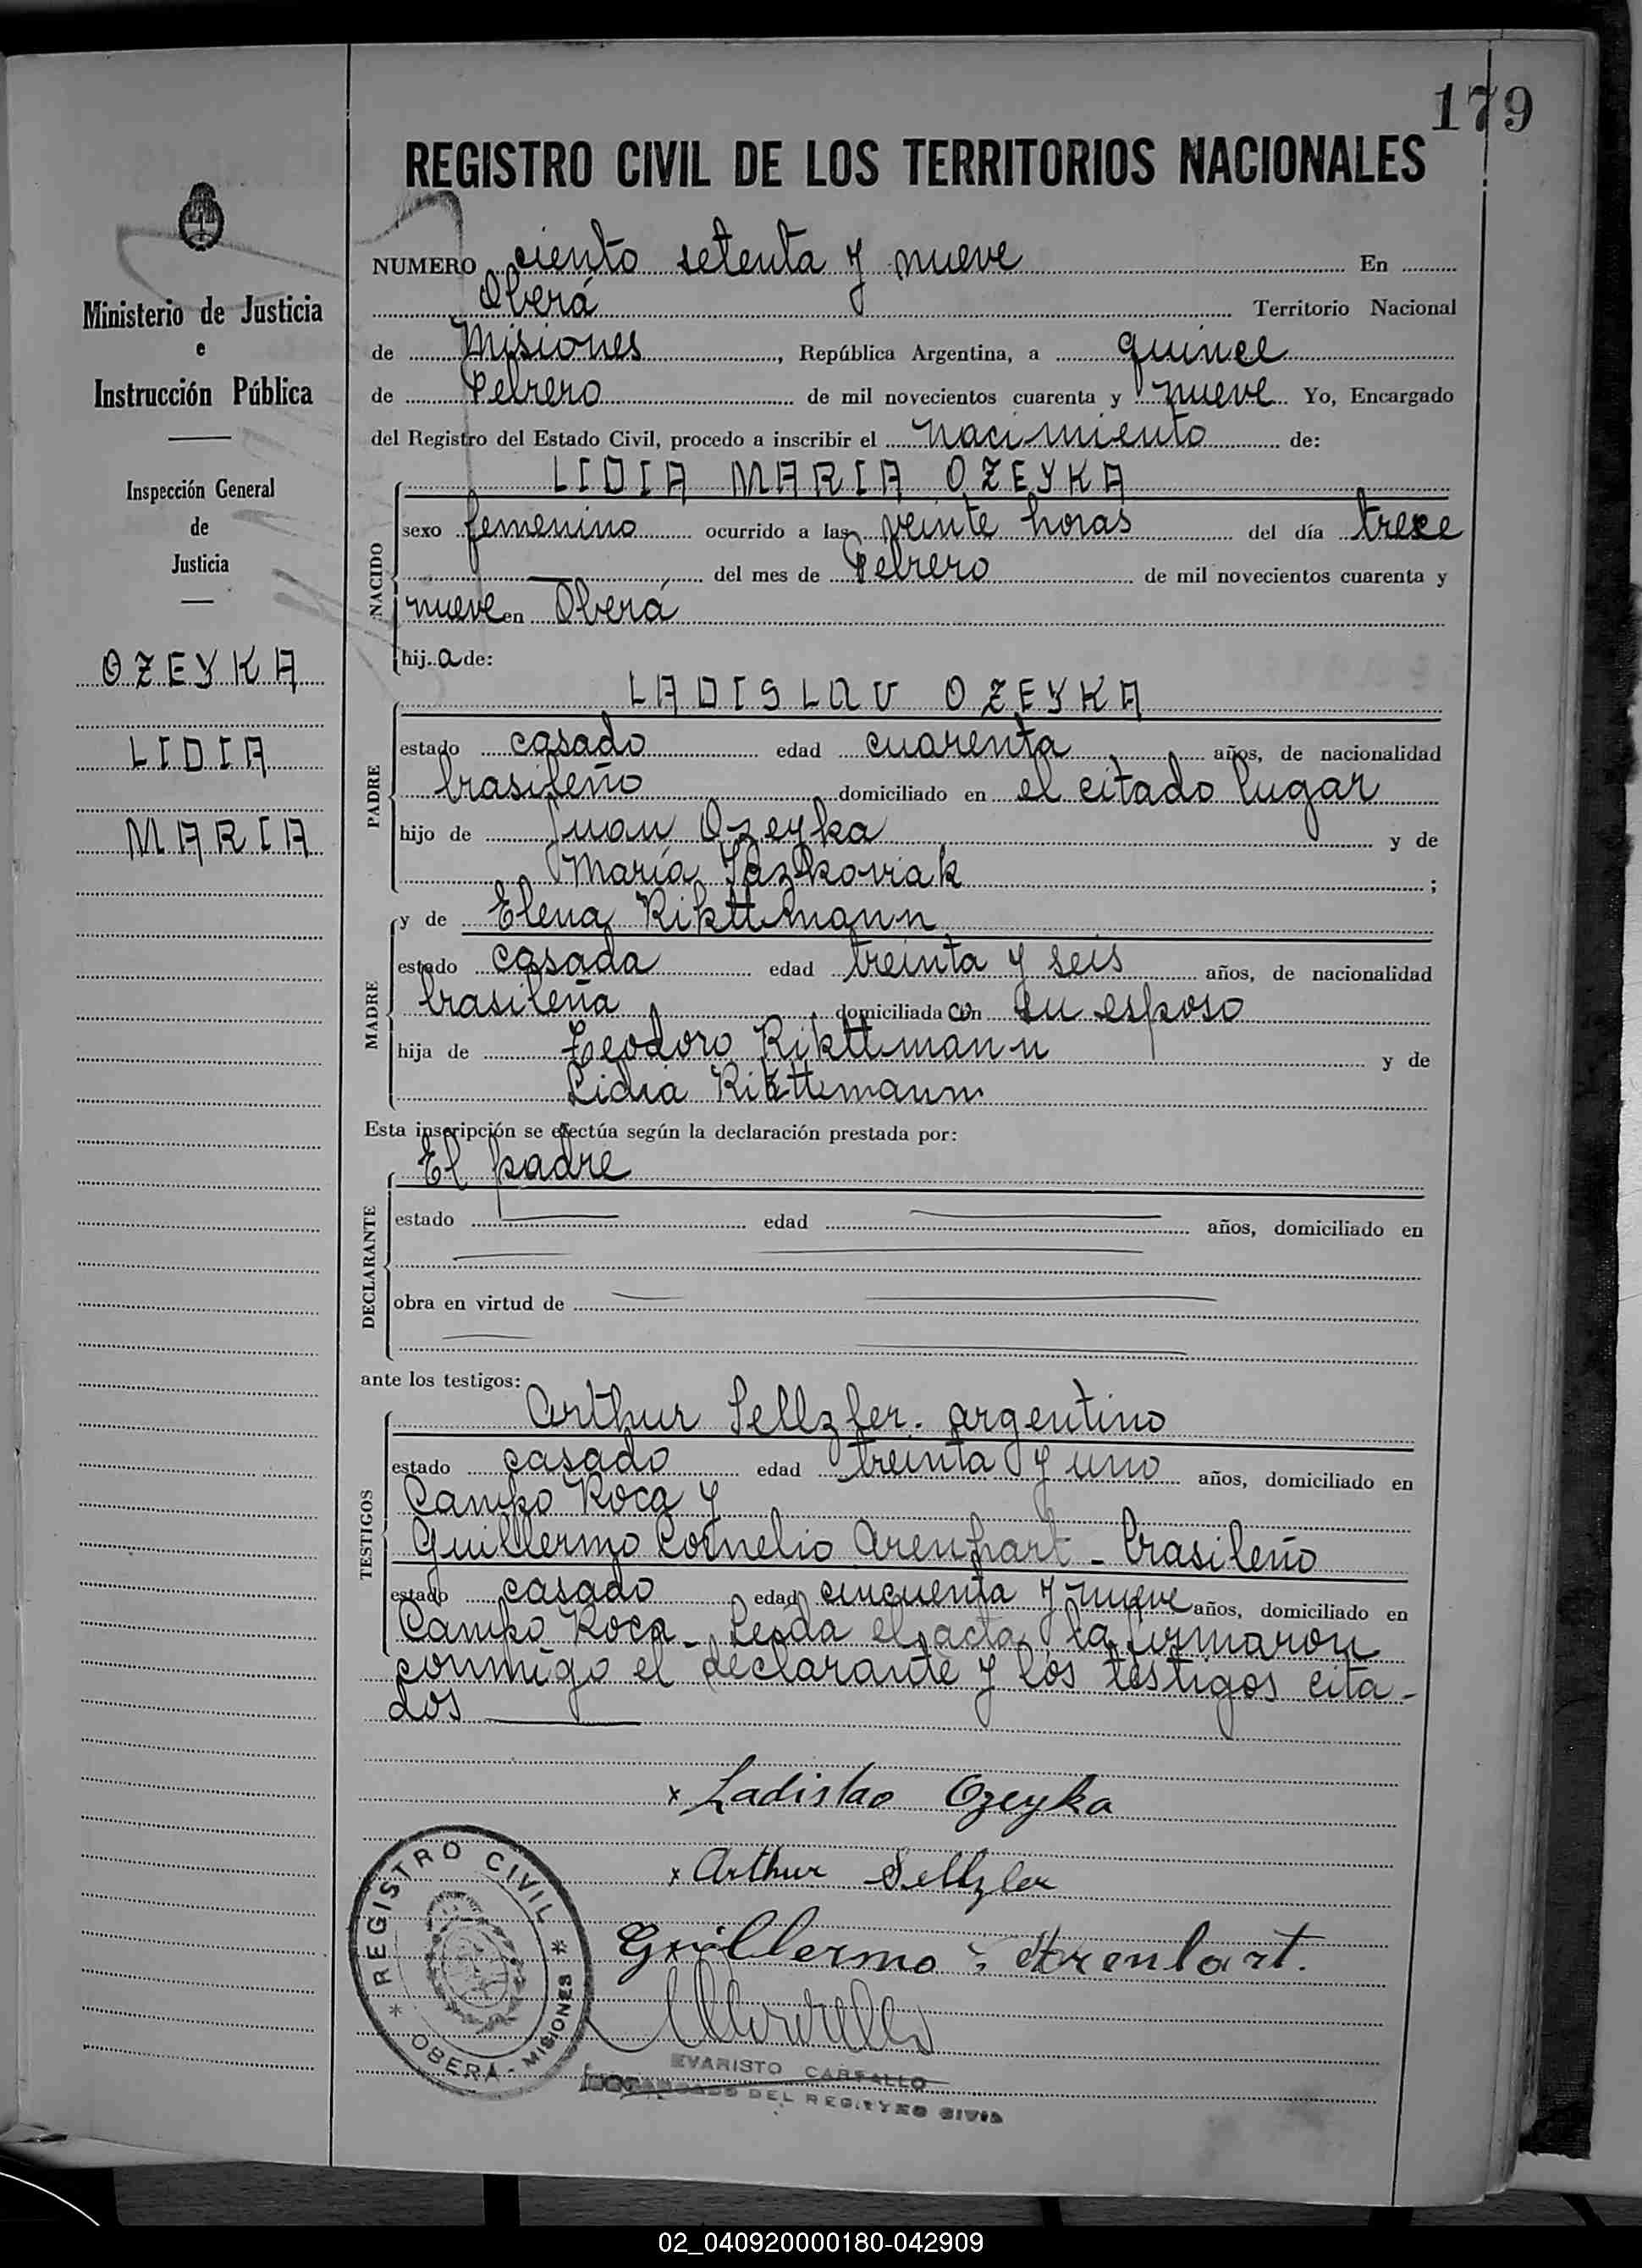 179
REGISTRO CIVIL DE LOS TERRITORIOS NACIONALES
Ministerio de Justicia
e
Instrucción Pública
Inspección General
de
Justicia
OZEYKA
LIDIA
MARIA
NUMERO ciento setenta y nueve En
Oberá Territorio Nacional
de Misiones, República Argentina, a quince
de Febrero de mil novecientos cuarenta y nueve Yo, Encargado
del Registro del Estado Civil, procedo a inscribir el nacimiento de:
NACIDO
LIDIA MARIA OZEYKA
sexo femenino ocurrido a las veinte horas del día trece
del mes de Febrero de mil novecientos cuarenta y
nueve en Oberá
hij a de:
PADRE
LADISLAU OZEYKA
estado casado edad cuarenta años, de nacionalidad
brasileño domiciliado en el citado lugar
hijo de Juan Ozeyka y de
María ;
MADRE
y de Elena Rikttmann
estado casada edad treinta y seis años, de nacionalidad
brasileña domiciliada con su esposo
hija de Teodoro Rikttmann y de
Lidia Rikttmann
Esta inscripción se efectúa según la declaración prestada por:
DECLARANTE
El padre
estado edad años, domiciliado en
obra en virtud de
ante los testigos:
TESTIGOS
Arthur Sellzler. argentino
estado casado edad treinta y uno años, domiciliado en
Campo Roca y
Guillermo Cornelio Arenhart - brasileño
estado casado edad cincuenta y nueve años, domiciliado en
Campo Roca - Leída el acta la firmaron
conmigo el declarante y los testigos cita-
dos
x Ladislao Ozeyka
x Arthur Sellzler
Guillermo Arenhart.
REGISTRO CIVIL
* OBERÁ - MISIONES *
EVARISTO CARFALLO
ENCARGADO DEL REGISTRO CIVIL
02_040920000180-042909